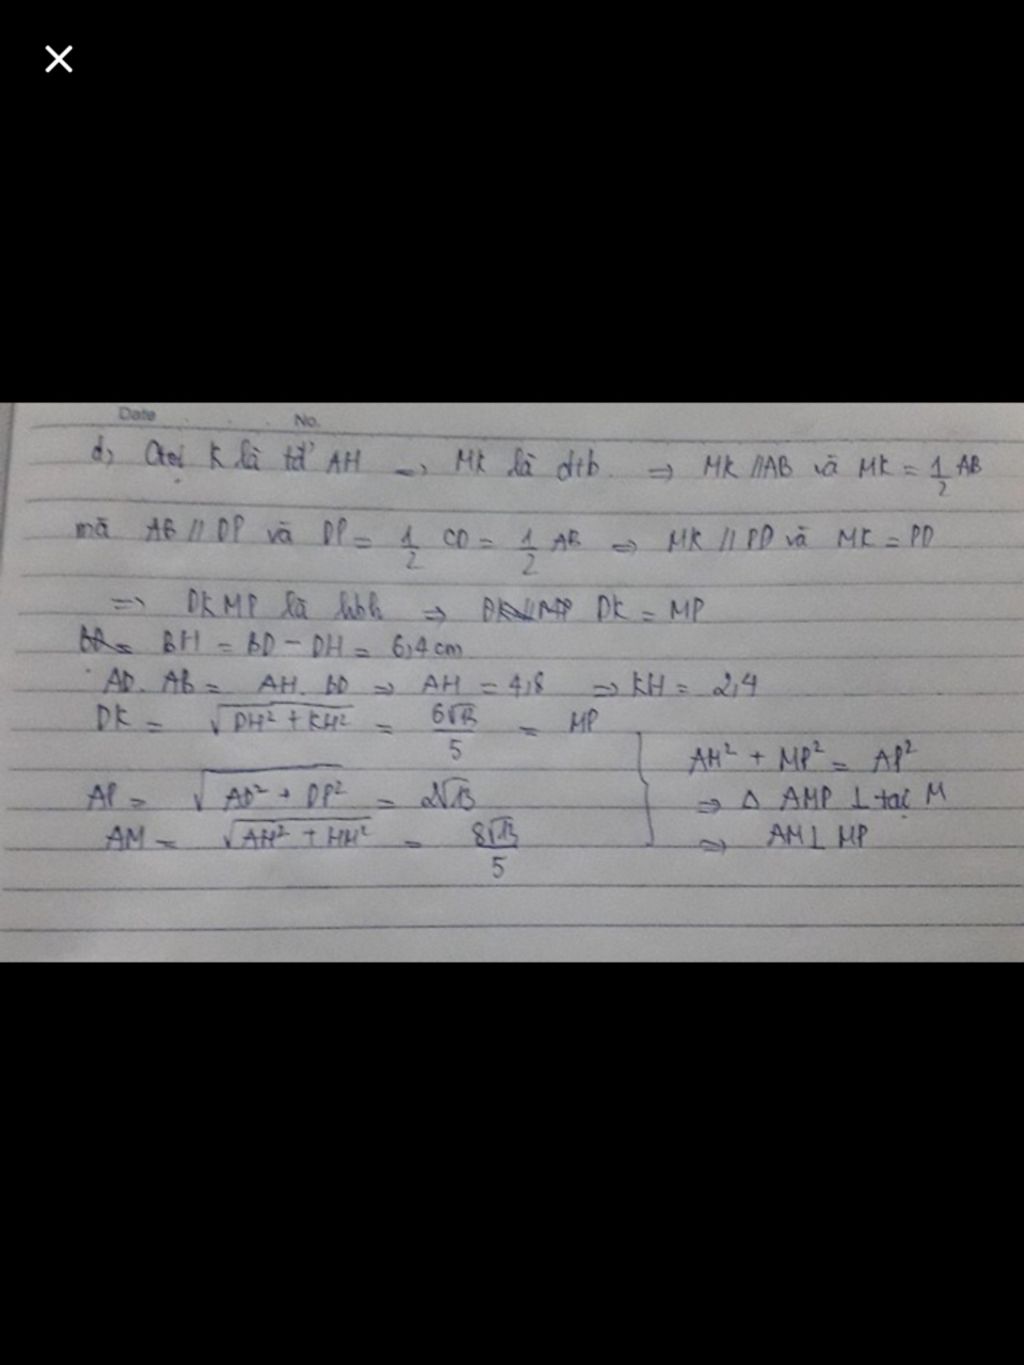 Date No.
d, Gọi K là tđ' AH => MK là đtb. => MK // AB và MK = 1/2 AB
mà AB // DP và DP = 1/2 CD = 1/2 AB => MK // PD và MK = PD
=> DKMP là hbh => DK // MP DK = MP
BH = BD - DH = 6,4 cm
AD. AB = AH. BD => AH = 4,8 => KH = 2,4
DK = √(DH² + KH²) = 6√13/5 = MP
AP = √(AD² + DP²) = 2√13
AM = √(AH² + HM²) = 8√13/5
AM² + MP² = AP²
=> Δ AMP ⊥ tại M
=> AM ⊥ MP